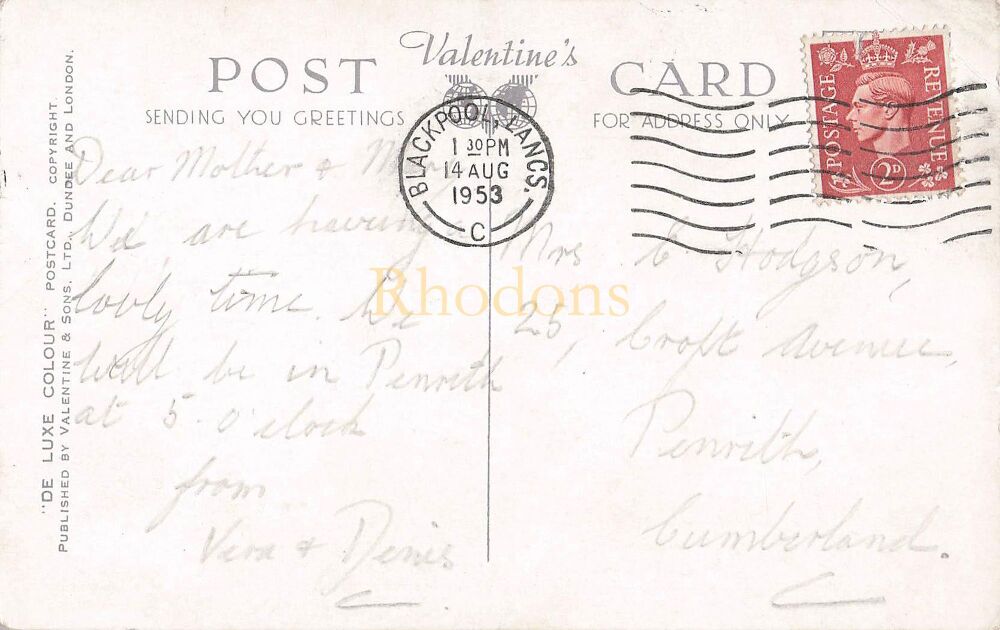 Valentine's
POST CARD
SENDING YOU GREETINGS
FOR ADDRESS ONLY
BLACKPOOL, LANCS.
1 30 PM
14 AUG
1953
C
POSTAGE REVENUE
2D
Dear Mother &
We are having
lovly time. We
will be in Penrith
at 5 O'clock
from
Vera & Denis
Mrs C Hodgson,
25, Croft Avenue,
Penrith,
Cumberland.
"DE LUXE COLOUR" POSTCARD. COPYRIGHT.
PUBLISHED BY VALENTINE & SONS, LTD., DUNDEE AND LONDON.
Rhodons